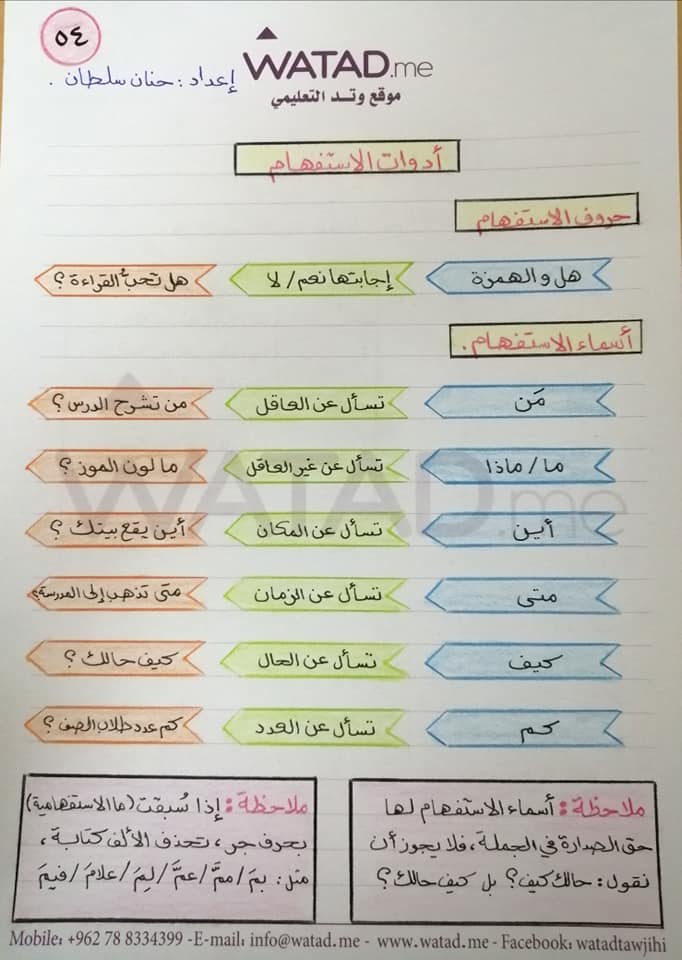 ٥٤
WATAD.me
موقع وتد التعليمي
إعداد : حنان سلطان .
أدوات الاستفهام
حروف الاستفهام
هل والهمزة
إجابتها نعم / لا
هل تحبُّ القراءة ؟
أسماء الاستفهام .
مَن
تسأل عن العاقل
من تشرح الدرس ؟
ما / ماذا
تسأل عن غير العاقل
ما لون الموز ؟
أين
تسأل عن المكان
أين يقع بيتك ؟
متى
تسأل عن الزمان
متى تذهب إلى المدرسة ؟
كيف
تسأل عن الحال
كيف حالك ؟
كم
تسأل عن العدد
كم عدد طلاب الصف ؟
ملاحظة : أسماء الاستفهام لها
حق الصدارة في الجملة ، فلا يجوز أن
نقول : حالك كيف ؟ بل كيف حالك ؟
ملاحظة : إذا سُبقت (ما الاستفهامية)
بحرف جر ، تحذف الألف كتابة ،
مثل : بمَ / ممَّ / عمَّ / لِمَ / علامَ / فيمَ
WATAD.me
Mobile: +962 78 8334399 -E-mail: info@watad.me - www.watad.me - Facebook: watadtawjihi